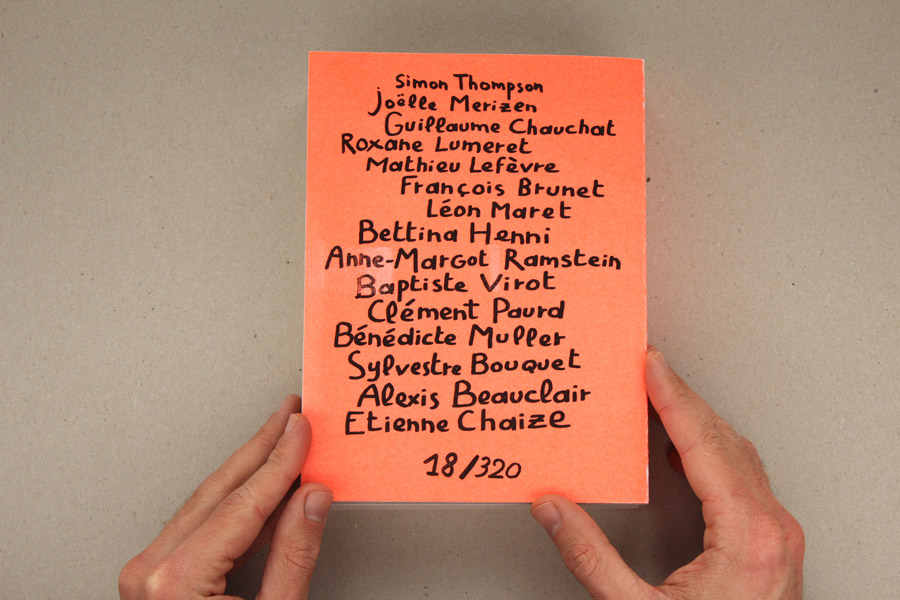 Simon Thompson
Joëlle Merizen
Guillaume Chauchat
Roxane Lumeret
Mathieu Lefèvre
François Brunet
Léon Maret
Bettina Henni
Anne-Margot Ramstein
Baptiste Virot
Clément Paurd
Bénédicte Muller
Sylvestre Bouquet
Alexis Beauclair
Etienne Chaize
18/320